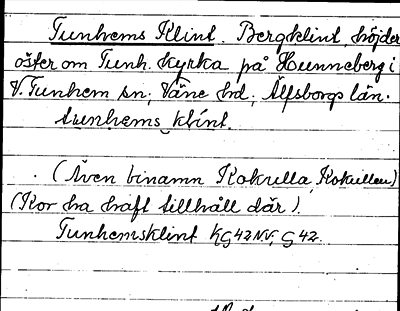 Tunhems Klint. Bergklint, höjder
öster om Tunh. kyrka på Hunneberg i
V. Tunhem sn; Väne hd; Älfsborgs län.
tunhems klint.
(Även binamn Kokulla, Kokullen)
(Kor ha haft tillhåll där).
Tunhemsklint KG42NV, G 42.